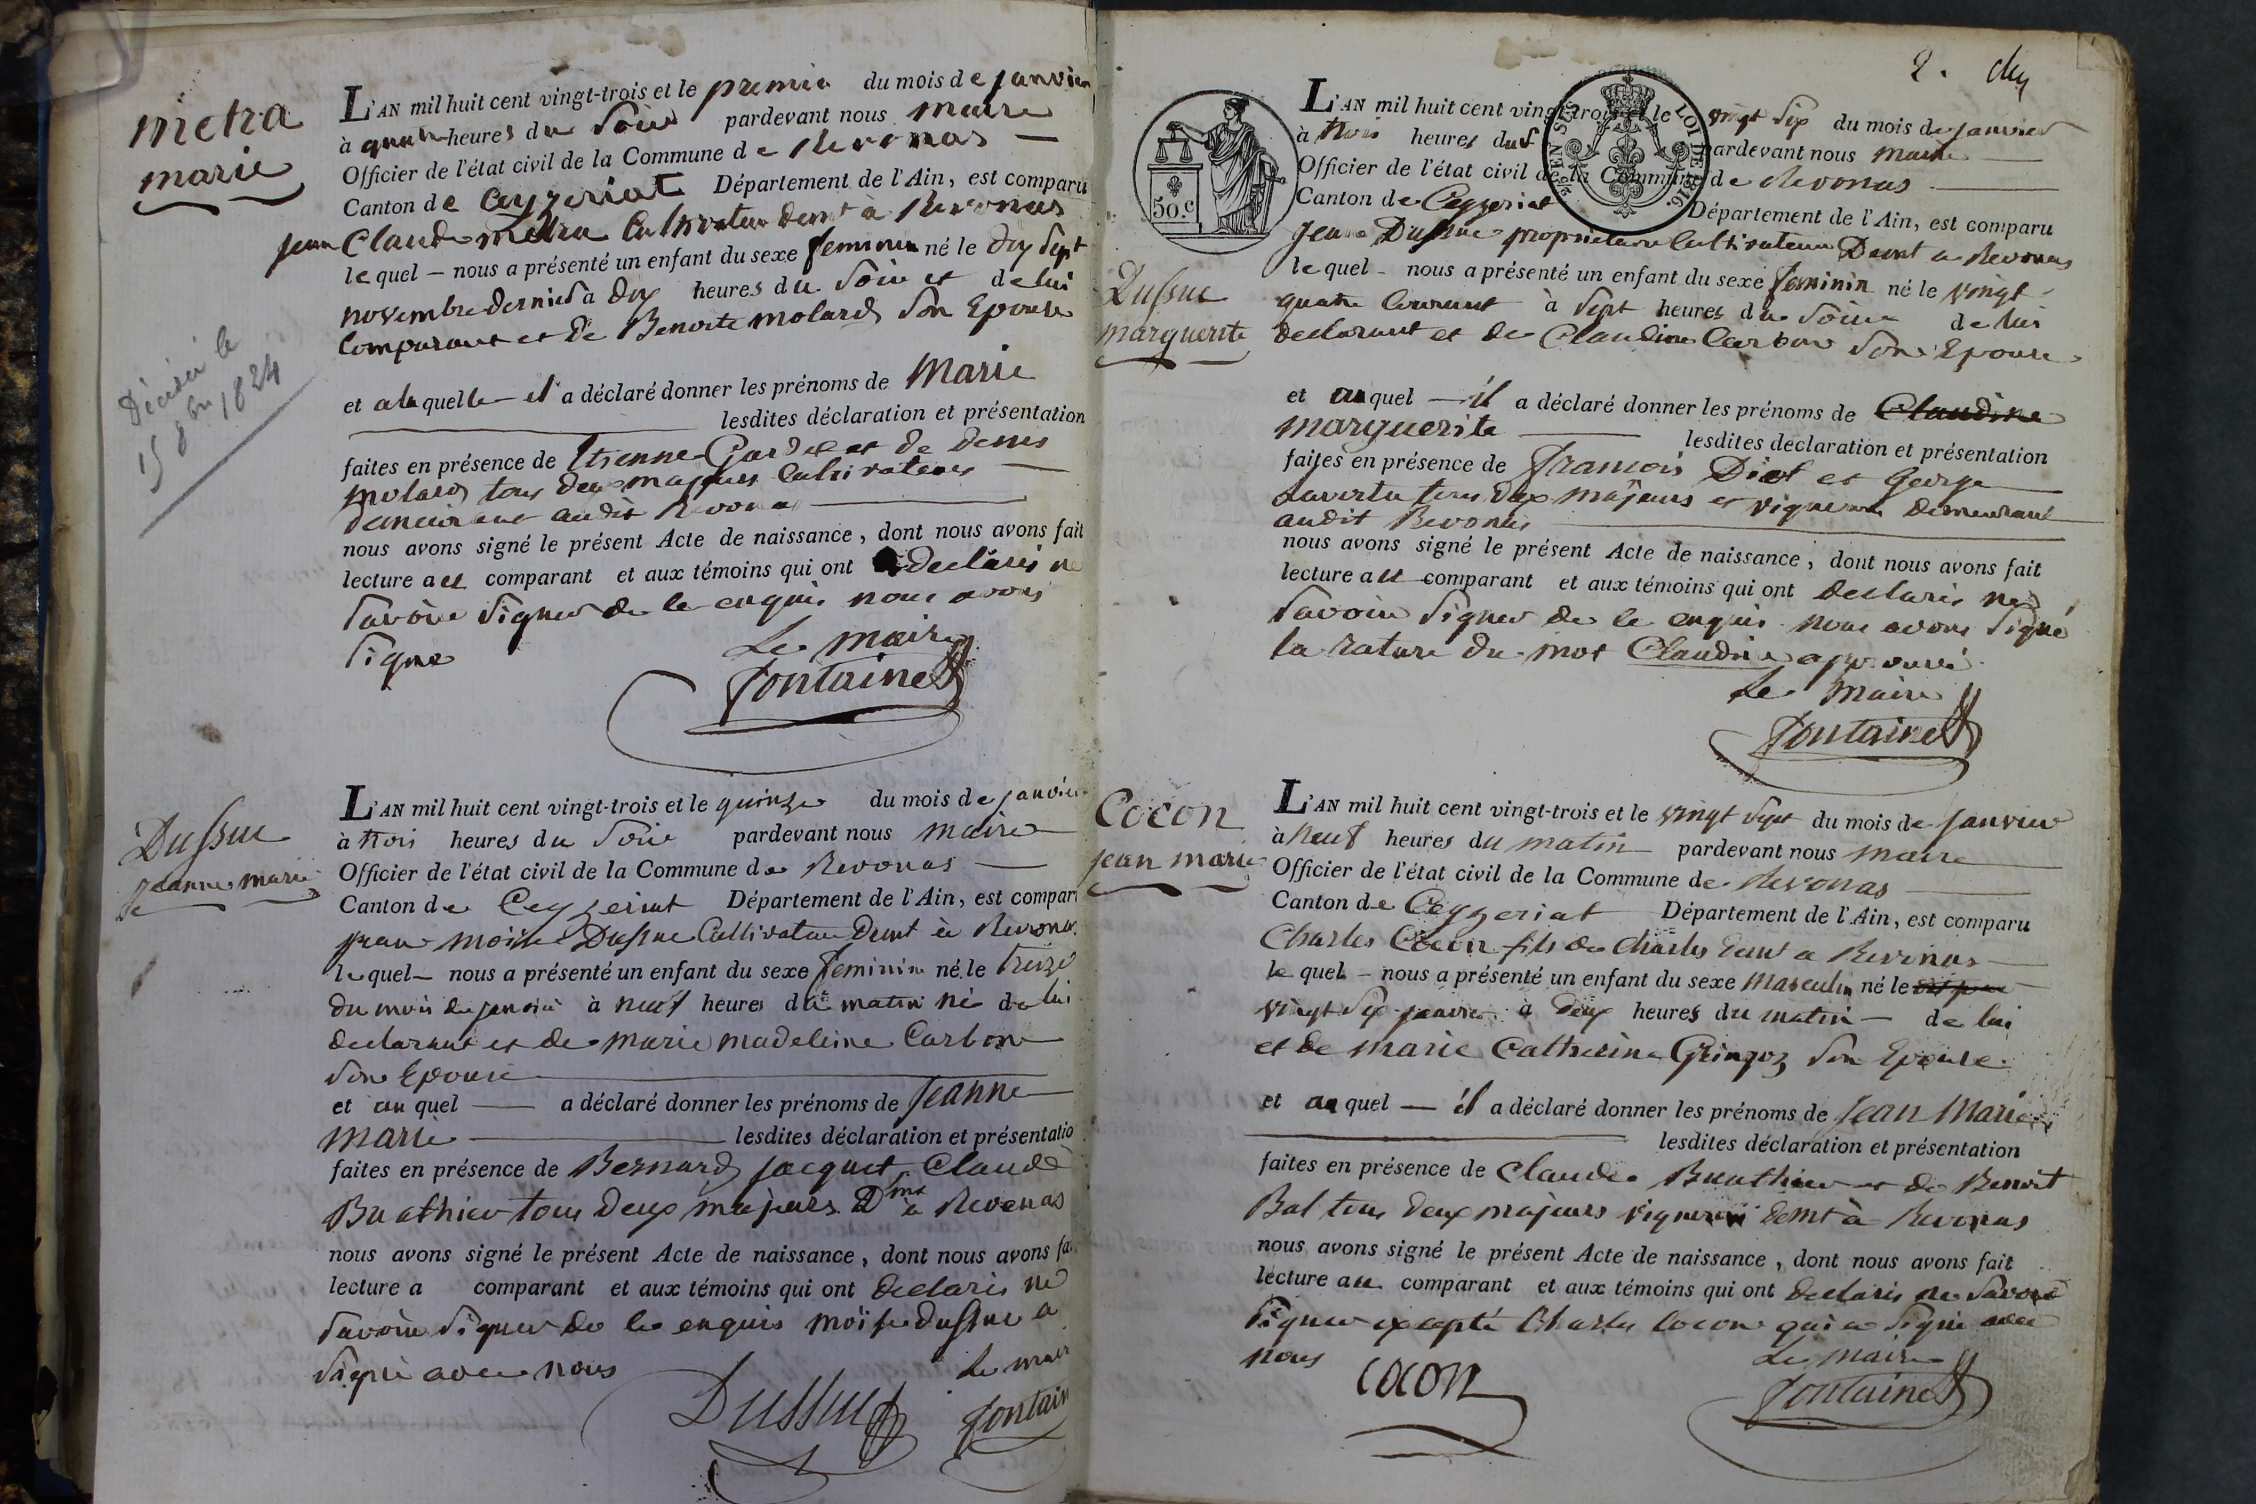 metra
marie
Décédée le
15 8bre 1824
L'AN mil huit cent vingt-trois et le premier du mois de janvier
à quatre heures du Soir pardevant nous maire
Officier de l'état civil de la Commune de Revonas
Canton de Ceyzeriat Département de l'Ain, est comparu
jean Claude metra Cultivateur demt à Revonas
le quel nous a présenté un enfant du sexe feminin né le dix sept
novembre dernier à dix heures du Soir et de lui
comparant et de Benoite molard Son Epouse
et a la quelle il a déclaré donner les prénoms de Marie
lesdites déclaration et présentation
faites en présence de Etienne et de denis
molard tous deux majeurs Cultivateurs
demeurant audit Revonas
nous avons signé le présent Acte de naissance, dont nous avons fait
lecture au comparant et aux témoins qui ont declarés ne
Savoir Signer de le enquis nous avons
Signe
Le maire
Fontaine
Dussuc
jeanne marie
L'AN mil huit cent vingt-trois et le quinze du mois de janvier
à trois heures du Soir pardevant nous maire
Officier de l'état civil de la Commune de Revonas
Canton de Ceyzeriat Département de l'Ain, est compar
jean moise Dussuc Cultivateur Demt à Revonas
le quel nous a présenté un enfant du sexe feminin né le treize
du mois de janvier à neuf heures du matin né de lui
declarant et de marie madeleine Carbon
Son Epouse
et au quel a déclaré donner les prénoms de Jeanne
marie lesdites déclaration et présentatio
faites en présence de Bernard jacquet Claude
Buathier tous deux majeurs Dmt à Revonas
nous avons signé le présent Acte de naissance, dont nous avons fai
lecture a comparant et aux témoins qui ont declarés ne
Savoir Signer de le enquis moïse dussuc a
Signé avec nous Le mair
Dussuc Fontain
2. 
50.c
2/10 EN SUS LOI DE 1816.
L'AN mil huit cent vingt-trois et le vingt Six du mois de janvier
à trois heures du S pardevant nous maire
Officier de l'état civil de la Commune de Revonas
Canton de Ceyzeriat Département de l'Ain, est comparu
Dussuc
marguerite
Jean Dussuc proprietaire Cultivateur Demt a Revonas
le quel nous a présenté un enfant du sexe feminin né le vingt
quatre Courant à Sept heures du Soir de lui
declarant et de Claudine Carbon Son Epouse
et au quel il a déclaré donner les prénoms de Claudine
marguerite lesdites déclaration et présentation
faites en présence de francois Diot et George
Lavertu tous deux majeurs et vignerons demeurant
audit Revonas
nous avons signé le présent Acte de naissance, dont nous avons fait
lecture au comparant et aux témoins qui ont declarés ne
Savoir Signer de le enquis nous avons Signé
la rature du mot Claudine approuvé
Le Maire
Fontaine
Cocon
jean marie
L'AN mil huit cent vingt-trois et le vingt Sept du mois de janvier
à neuf heures du matin pardevant nous maire
Officier de l'état civil de la Commune de Revonas
Canton de Ceyzeriat Département de l'Ain, est comparu
Charles Cocon fils de Charles demt a Revonas
le quel nous a présenté un enfant du sexe Masculin né le
vingt Six janvier à deux heures du matin de lui
et de marie Catherine Gringoz Son Epouse
et au quel il a déclaré donner les prénoms de Jean Marie
lesdites déclaration et présentation
faites en présence de Claude Buathier et de Benoit
Bal tous deux majeurs vignerons demt à Revonas
nous avons signé le présent Acte de naissance, dont nous avons fait
lecture au comparant et aux témoins qui ont declarés ne Savoir
Signer excepté Charles Cocon qui a Signé avec
nous
Le Maire
COCON Fontaine